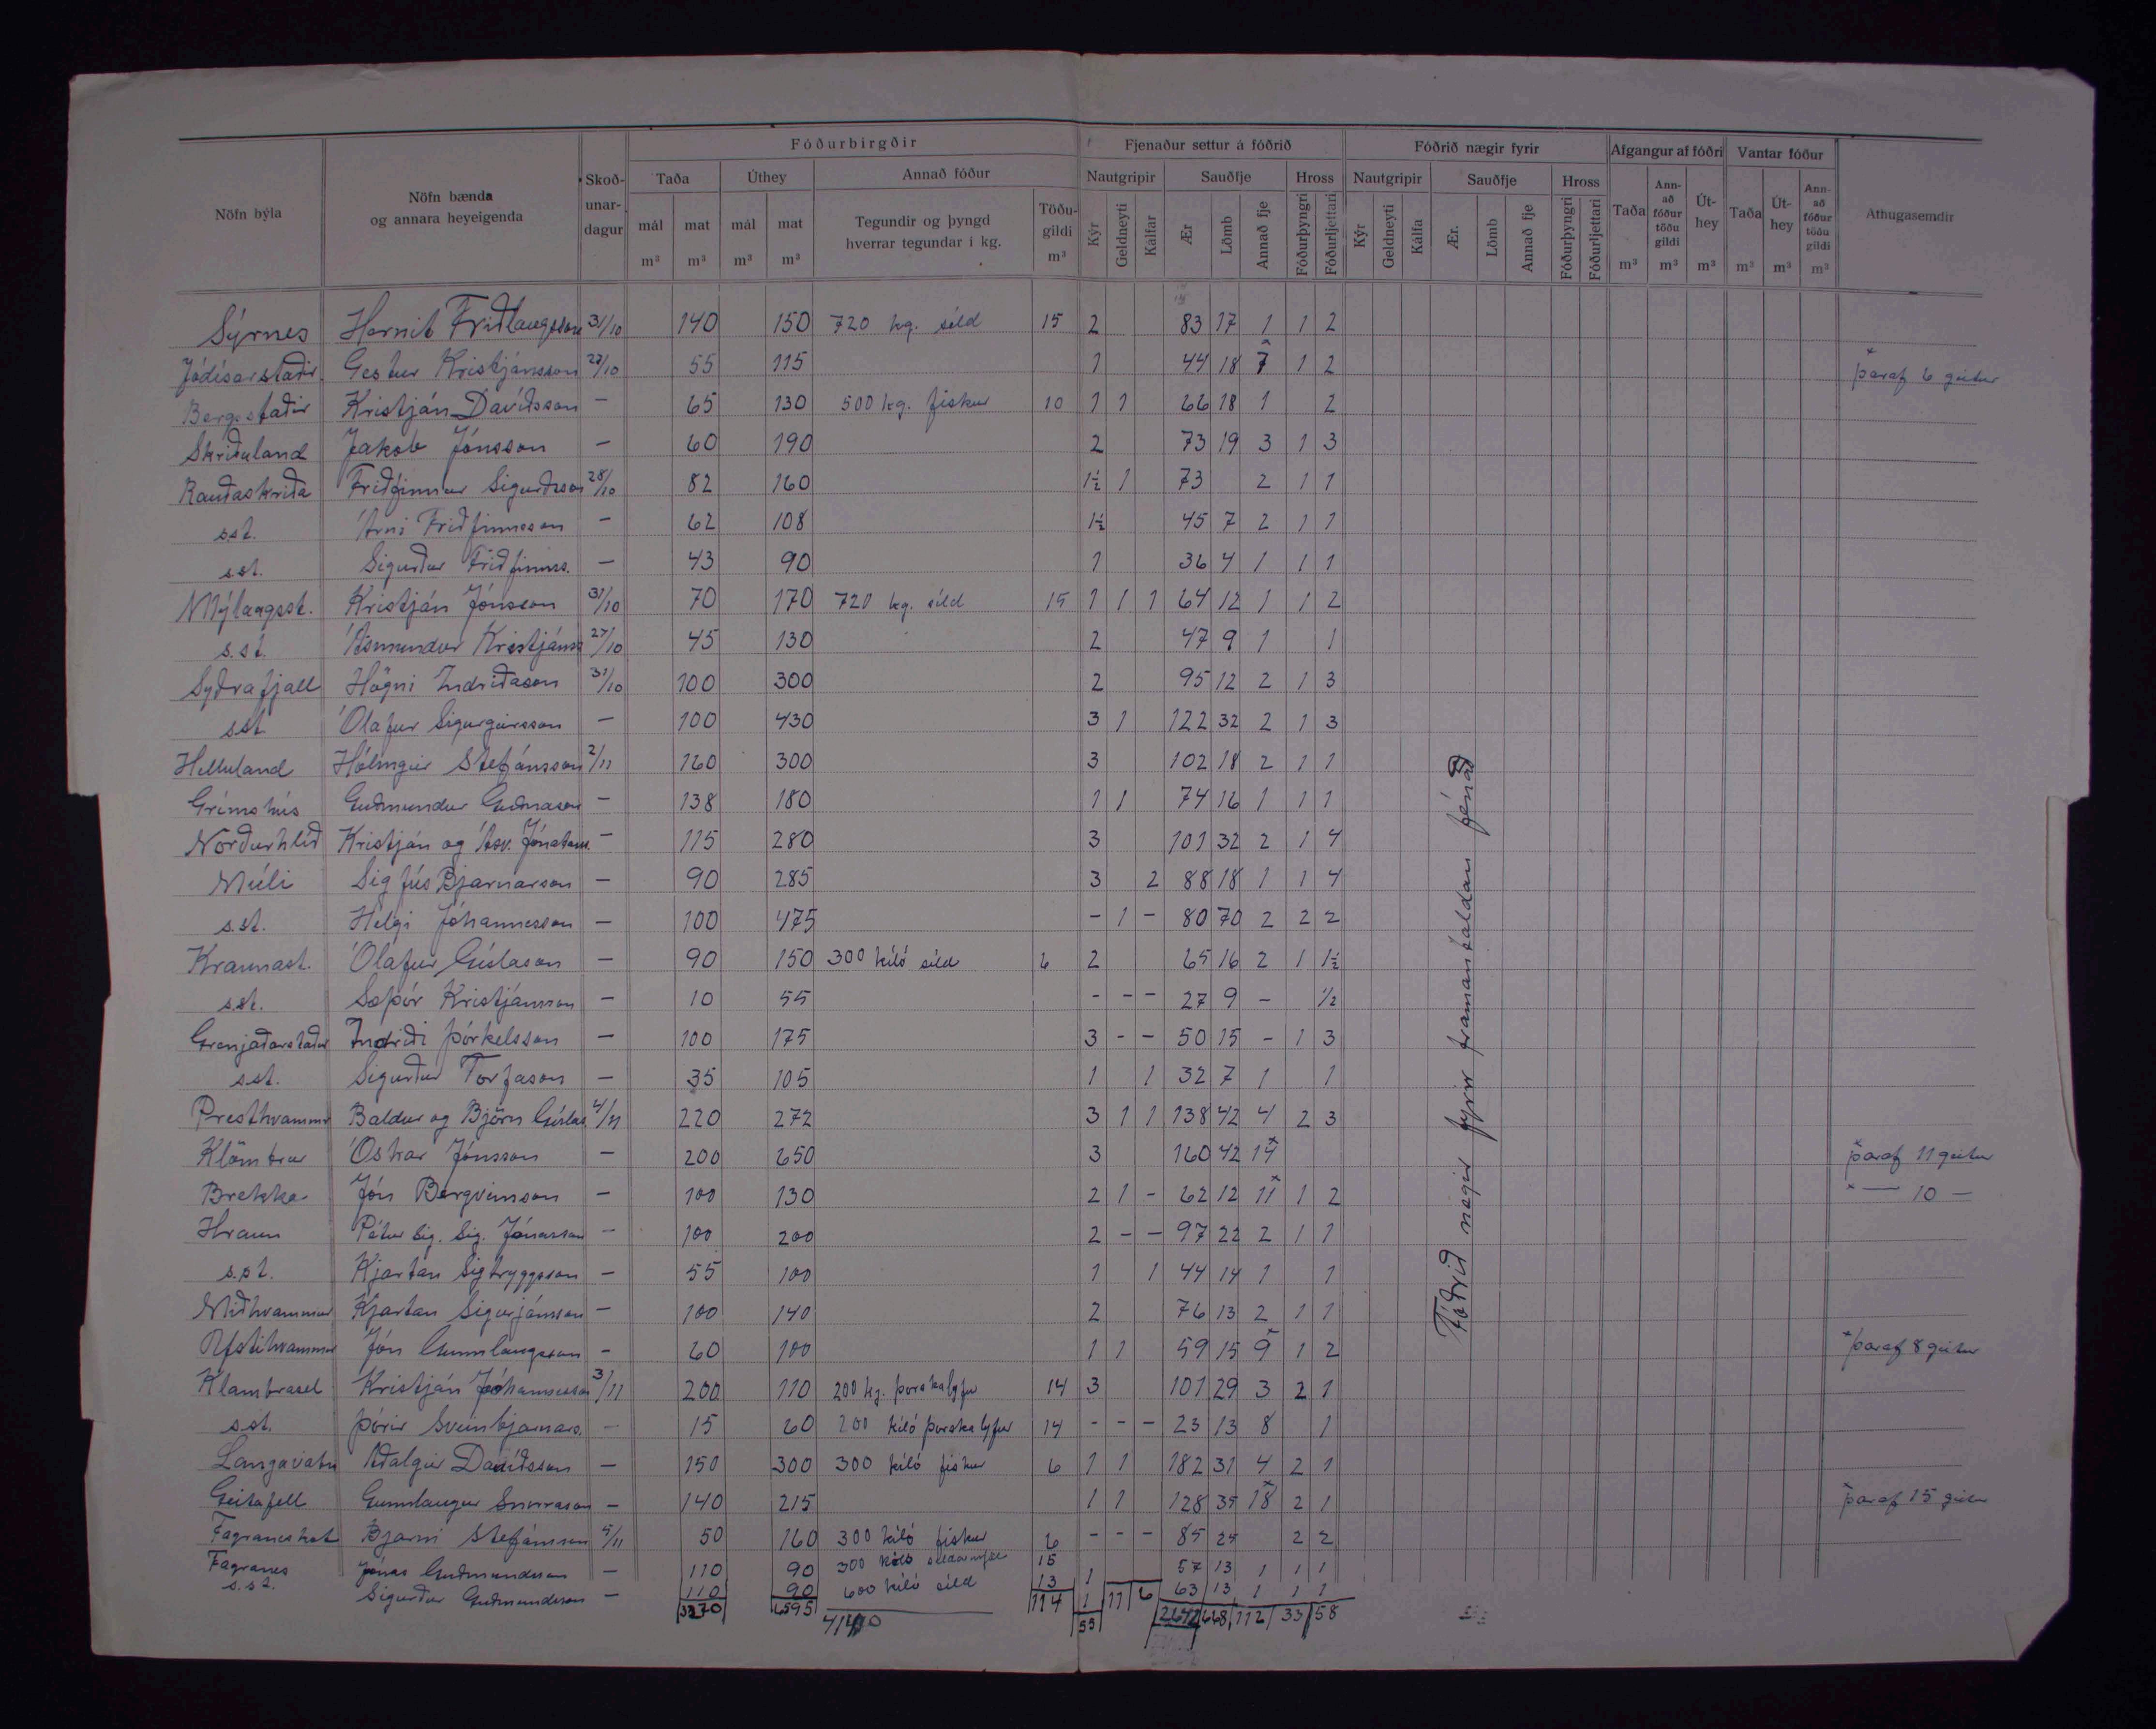 Fóðurbirgðir Fjenaður settur á fóðrið Fóðrið nægir fyrir Afgangur af fóðri Vantar fóður
Nöfn býla Nöfn bænda og annara heyeigenda Skoð-unar-dagur Taða Úthey Annað fóður Nautgripir Sauðfje Hross Nautgripir Sauðfje Hross Athugasemdir
mál m³ mat m³ mál m³ mat m³ Tegundir og þyngd hverrar tegundar í kg. Töðu-gildi m³ Kýr Geldneyti Kálfar Ær Lömb Annað fje Fóðurþyngri Fóðurljettari Kýr Geldneyti Kálfa Ær. Lömb Annað fje Fóðurþyngri Fóðurljettari Taða m³ Ann-að fóður töðu gildi m³ Út-hey m³ Taða m³ Út-hey m³ Ann-að fóður töðu gildi m³
Sýrnes Hernit Friðlaugsson 31/10 140 150 720 kg. síld 15 2 83 17 1 1 2
Jódísarstaðir Gestur Kristjánsson 27/10 55 115 1 44 18 7 1 2 × þaraf 6 geitur
Bergsstaðir Kristján Davíðsson – 65 130 500 kg. fiskur 10 1 1 66 18 1 2
Skriðuland Jakob Jónsson – 60 190 2 73 19 3 1 3
Rauðaskriða Friðfinnur Sigurðsson 28/10 82 160 1½ 1 73 2 1 1
s.st. Árni Friðfinnsson – 62 108 1½ 45 7 2 1 1
s.st. Sigurður Friðfinns. – 43 90 1 36 4 1 1 1
Mýlaugsst. Kristján Jónsson 31/10 70 170 720 kg. síld 15 1 1 1 64 12 1 1 2
s.st. Ásmundur Kristjánss 27/10 45 130 2 47 9 1 1
Syðrafjall Högni Indriðason 31/10 100 300 2 95 12 2 1 3
s.st. Ólafur Sigurgeirsson – 100 430 3 1 122 32 2 1 3
Helluland Hólmgeir Stefánsson 2/11 160 300 3 102 18 2 1 1
Grímshús Guðmundur Guðnason – 138 180 1 1 74 16 1 1 1
Norðurhlíð Kristján og Ásv. Jónatans. – 115 280 3 101 32 2 1 4
Múli Sigfús Bjarnarson – 90 285 3 2 88 18 1 1 4
s.st. Helgi Jóhannesson – 100 475 – 1 – 80 70 2 2 2
Kraunast. Ólafur Gíslason – 90 150 300 kíló síld 6 2 65 16 2 1 1½
s.st. Sæþór Kristjánsson – 10 55 – – – 27 9 – ½
Grenjaðarstaður Indriði Þórkelsson – 100 175 3 – – 50 15 – 1 3
s.st. Sigurður Torfason – 35 105 1 1 32 7 1 1
Presthvammur Baldur og Björn Gíslas. 4/11 220 272 3 1 1 138 42 4 2 3
Klömbrur Óskar Jónsson – 200 650 3 160 42 14× × þaraf 11 geitur
Brekka Jón Bergvinsson – 100 130 2 1 – 62 12 11× 1 2 × — 10 —
Hraun Pétur Sig. Sig. Jónasson – 100 200 2 – – 97 22 2 1 1
s.st. Kjartan Sigtryggsson – 55 100 1 1 44 14 1 1
Miðhvammur Kjartan Sigurjónsson – 100 140 2 76 13 2 1 1
Ystihvammur Jón Gunnlaugsson – 60 100 1 1 59 15 9× 1 2 × þaraf 8 geitur
Klambrasel Kristján Jóhannesson 3/11 200 110 200 kg. þorskalýfur 14 3 101 29 3 2 1
s.st. Þórir Sveinbjarnars. – 15 60 200 kíló þorskalýfur 14 – – – 23 13 8 1
Langavatn Aðalgeir Davíðsson – 150 300 300 kíló fiskur 6 1 1 182 31 4 2 1
Geitafell Gunnlaugur Snorrason – 140 215 1 1 128 35 18× 2 1 × þaraf 15 geitur
Fagraneskot Bjarni Stefánsson 5/11 50 160 300 kíló fiskur 6 – – – 85 25 2 2
Fagranes Jónas Guðmundsson – 110 90 300 kíló síldarmjöl 15 1 57 13 1 1 1
s.st. Sigurður Guðmundsson – 110 90 600 kíló síld 13 1 63 13 1 1 1
3370 6595 4140 114 55 11 6 2642 668 112 33 58
Fóðrið nægir fyrir framantaldan fénað